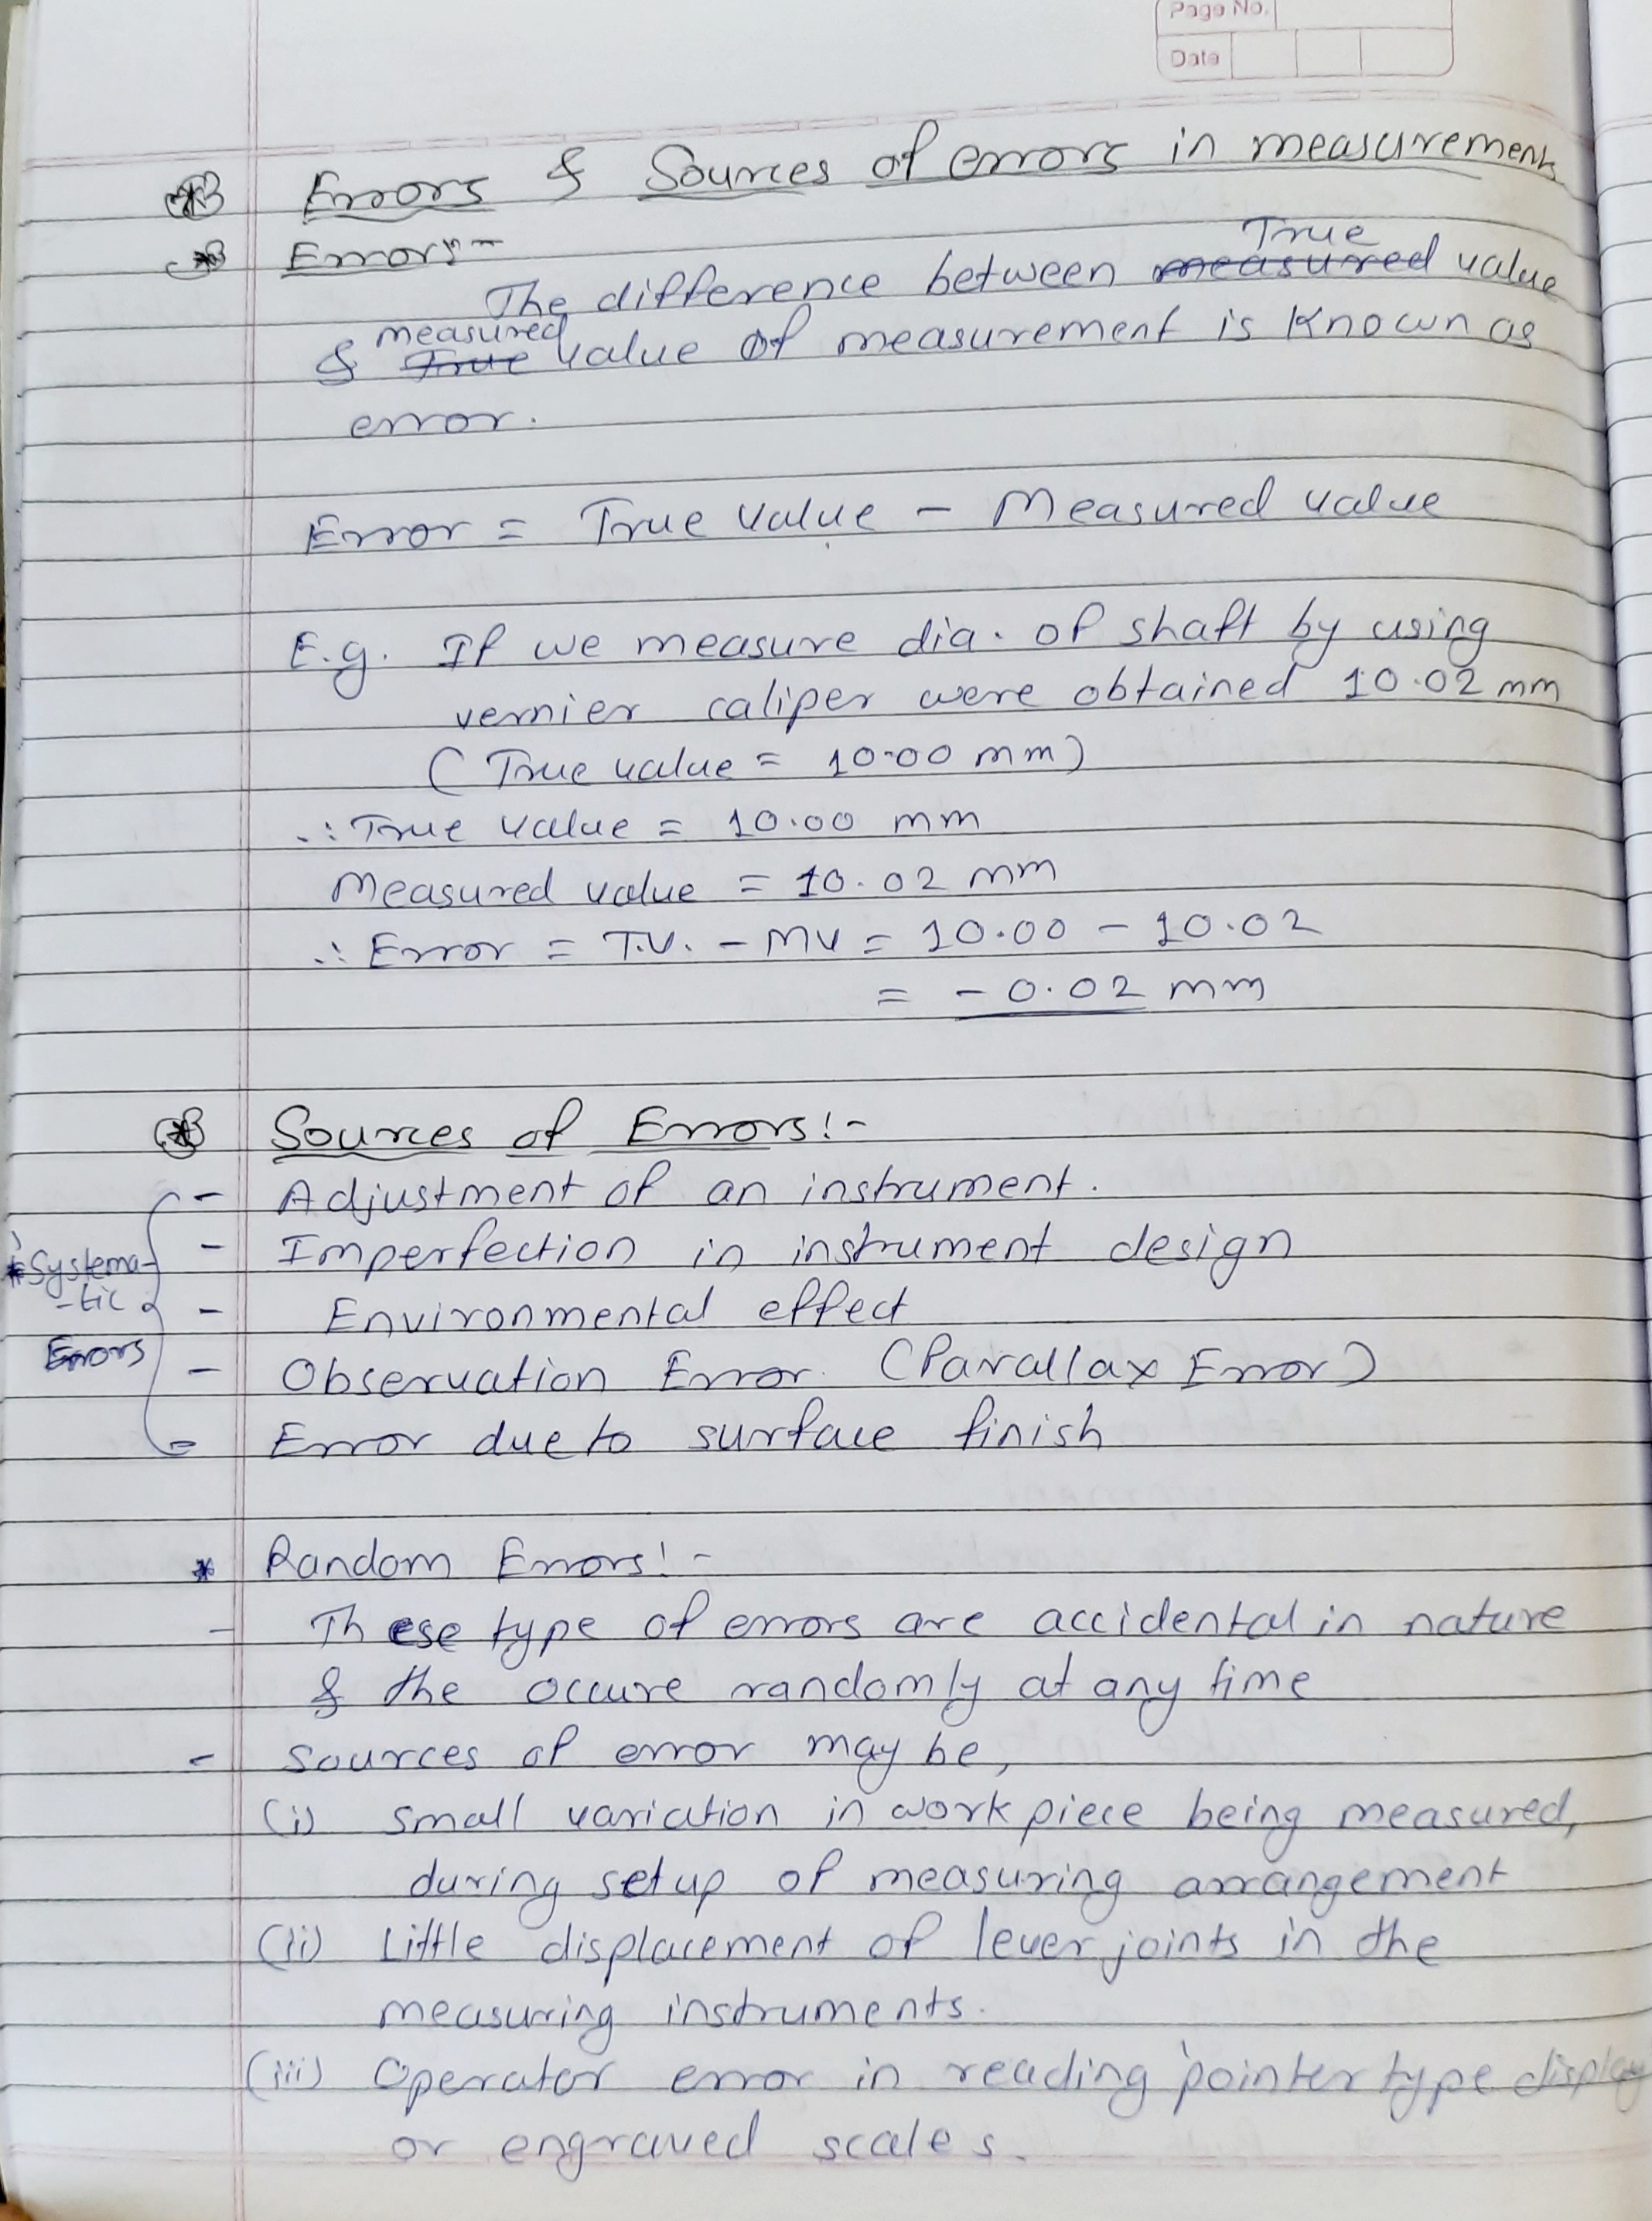 Page No.
Date
Errors & Sources of errors in measurements
Errors:-
True
The difference between measured value
measured
& True value of measurement is known as
error.
Error = True value - Measured value
E.g. If we measure dia. of shaft by using
vernier caliper were obtained 10.02 mm
( True value = 10.00 mm)
∴ True value = 10.00 mm
Measured value = 10.02 mm
∴ Error = T.V. - MV = 10.00 - 10.02
= - 0.02 mm
Sources of Errors:-
- Adjustment of an instrument.
- Imperfection in instrument design
* Systema-
-tic
Errors
- Environmental effect
- Observation Error. (Parallax Error)
= Error due to surface finish
* Random Errors:-
- These type of errors are accidental in nature
& the occure randomly at any time
- Sources of error may be,
(i) small variation in work piece being measured,
during setup of measuring arrangement
(ii) Little displacement of lever joints in the
measuring instruments.
(iii) Operator error in reading pointer type display
or engraved scales.